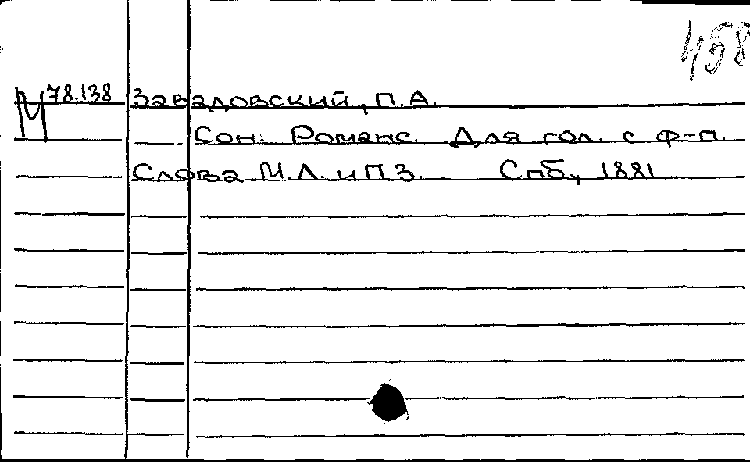 458
М 78.138 Заваловский, П.А.
Сон. Романс. Для гол. с ф-п.
Слова М.Л. и П.З. Спб, 1881